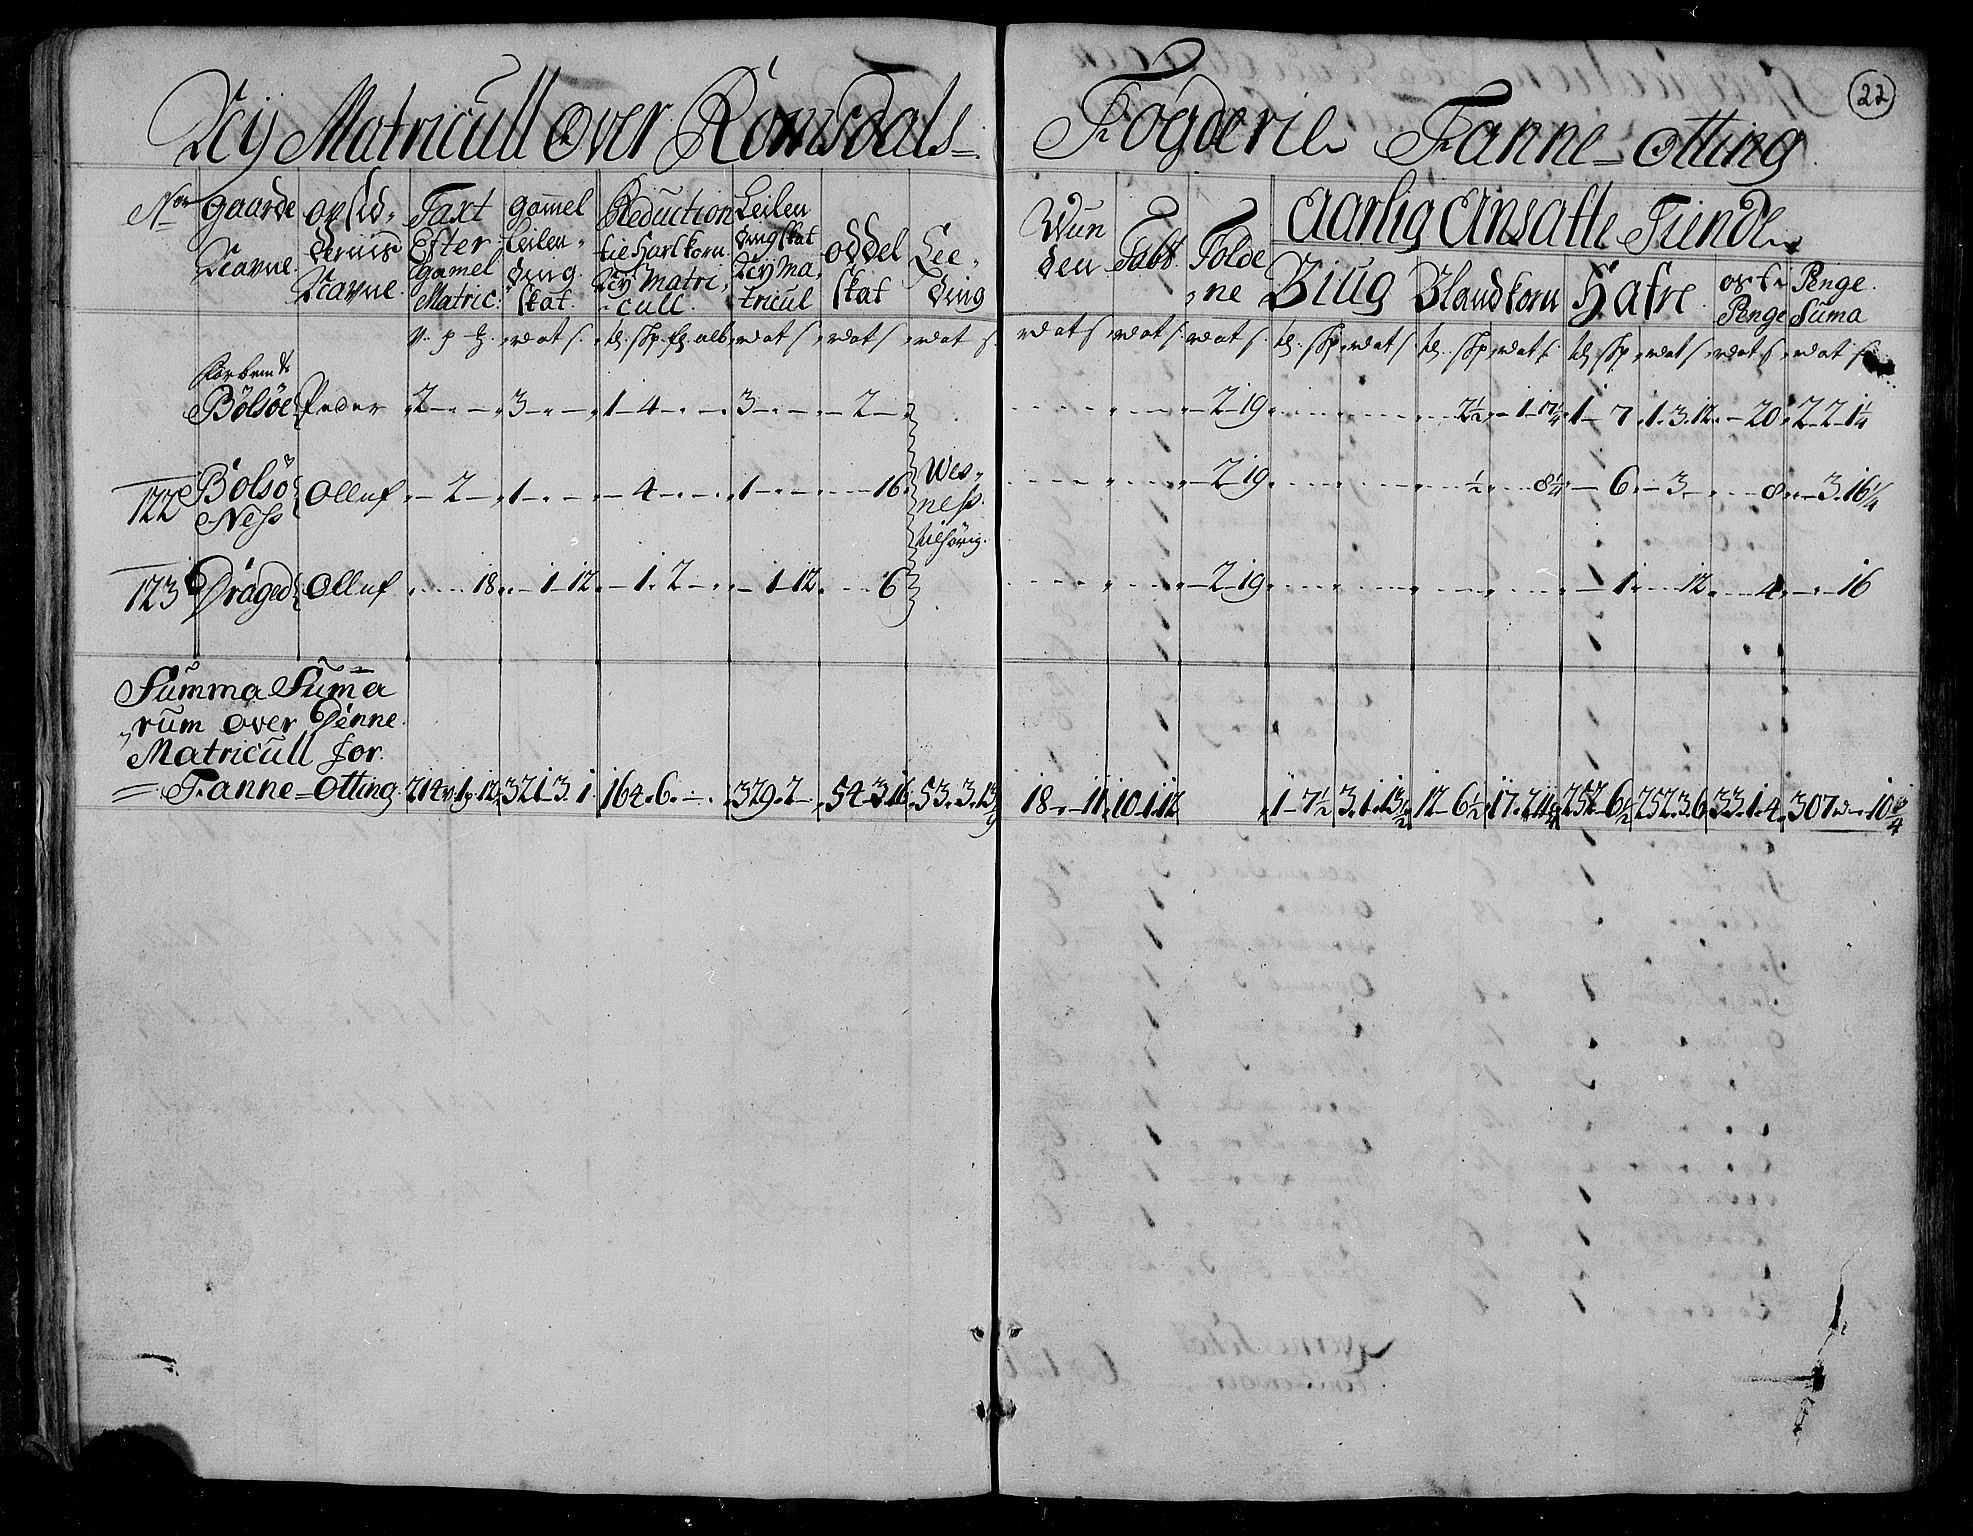 Nÿ Matricull over Romsdals
Fogderie Fanne-otting
22
No
gaarde Navne
opsid dernis Navne
Taxt Efter gamel Matric:
gamel Leilen ding skat
Reduction til Hartkorn Nÿ Matri cull
Leilen ding skat Nÿ Ma tricul
oddel skat
Lee ding
Wun den
Tabt
Tolde ne
Aarlig Ansatte Tiende
Biug
Blandkorn
Hafre
oste Penge
Penge Suma
Forbemt Bölsöe Peder 2 - - 3 - - 1 - 4 - - 3 - - - 2 - - 2 19 2½ - 1 - 17¼ 1 - 7 1 . 3 . 12 - 20 2 - 2 - 1¼
122 Bolsö Ness Olluf - 2 - 1 - - - 4 - - 1 - - - - 16 Wes ness tilhörig - 2 19 ½ 8¼ - 6 - 3 - - - 8 - 3 . 16¼
123 Draged Olluf - - 18 - 1 - 12 - 1 . 2 - - 1 - 12 - - 6 - 2 19 - 1 - - 12 - - 4 - - 16
Summa Suma
rum over Denne
Matricull for
Fanne-otting 214 v 1 p 12 321 - 3 . 1 164 . 6 . - . 329 . 2 - 54 - 3 . 16 53 . 3 . 13 18 . - 11 10 . 1 . 12 1 - 7½ 3 . 1 . 13½ 12 - 6½ 252 - 6½ 252 . 3 . 6 33 . 1 . 4 307 - - 10¾